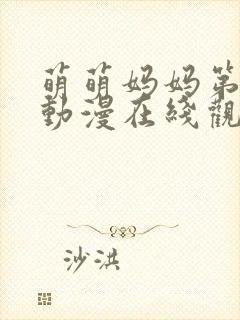 萌萌妈妈第
動漫在綫觀
沙洪